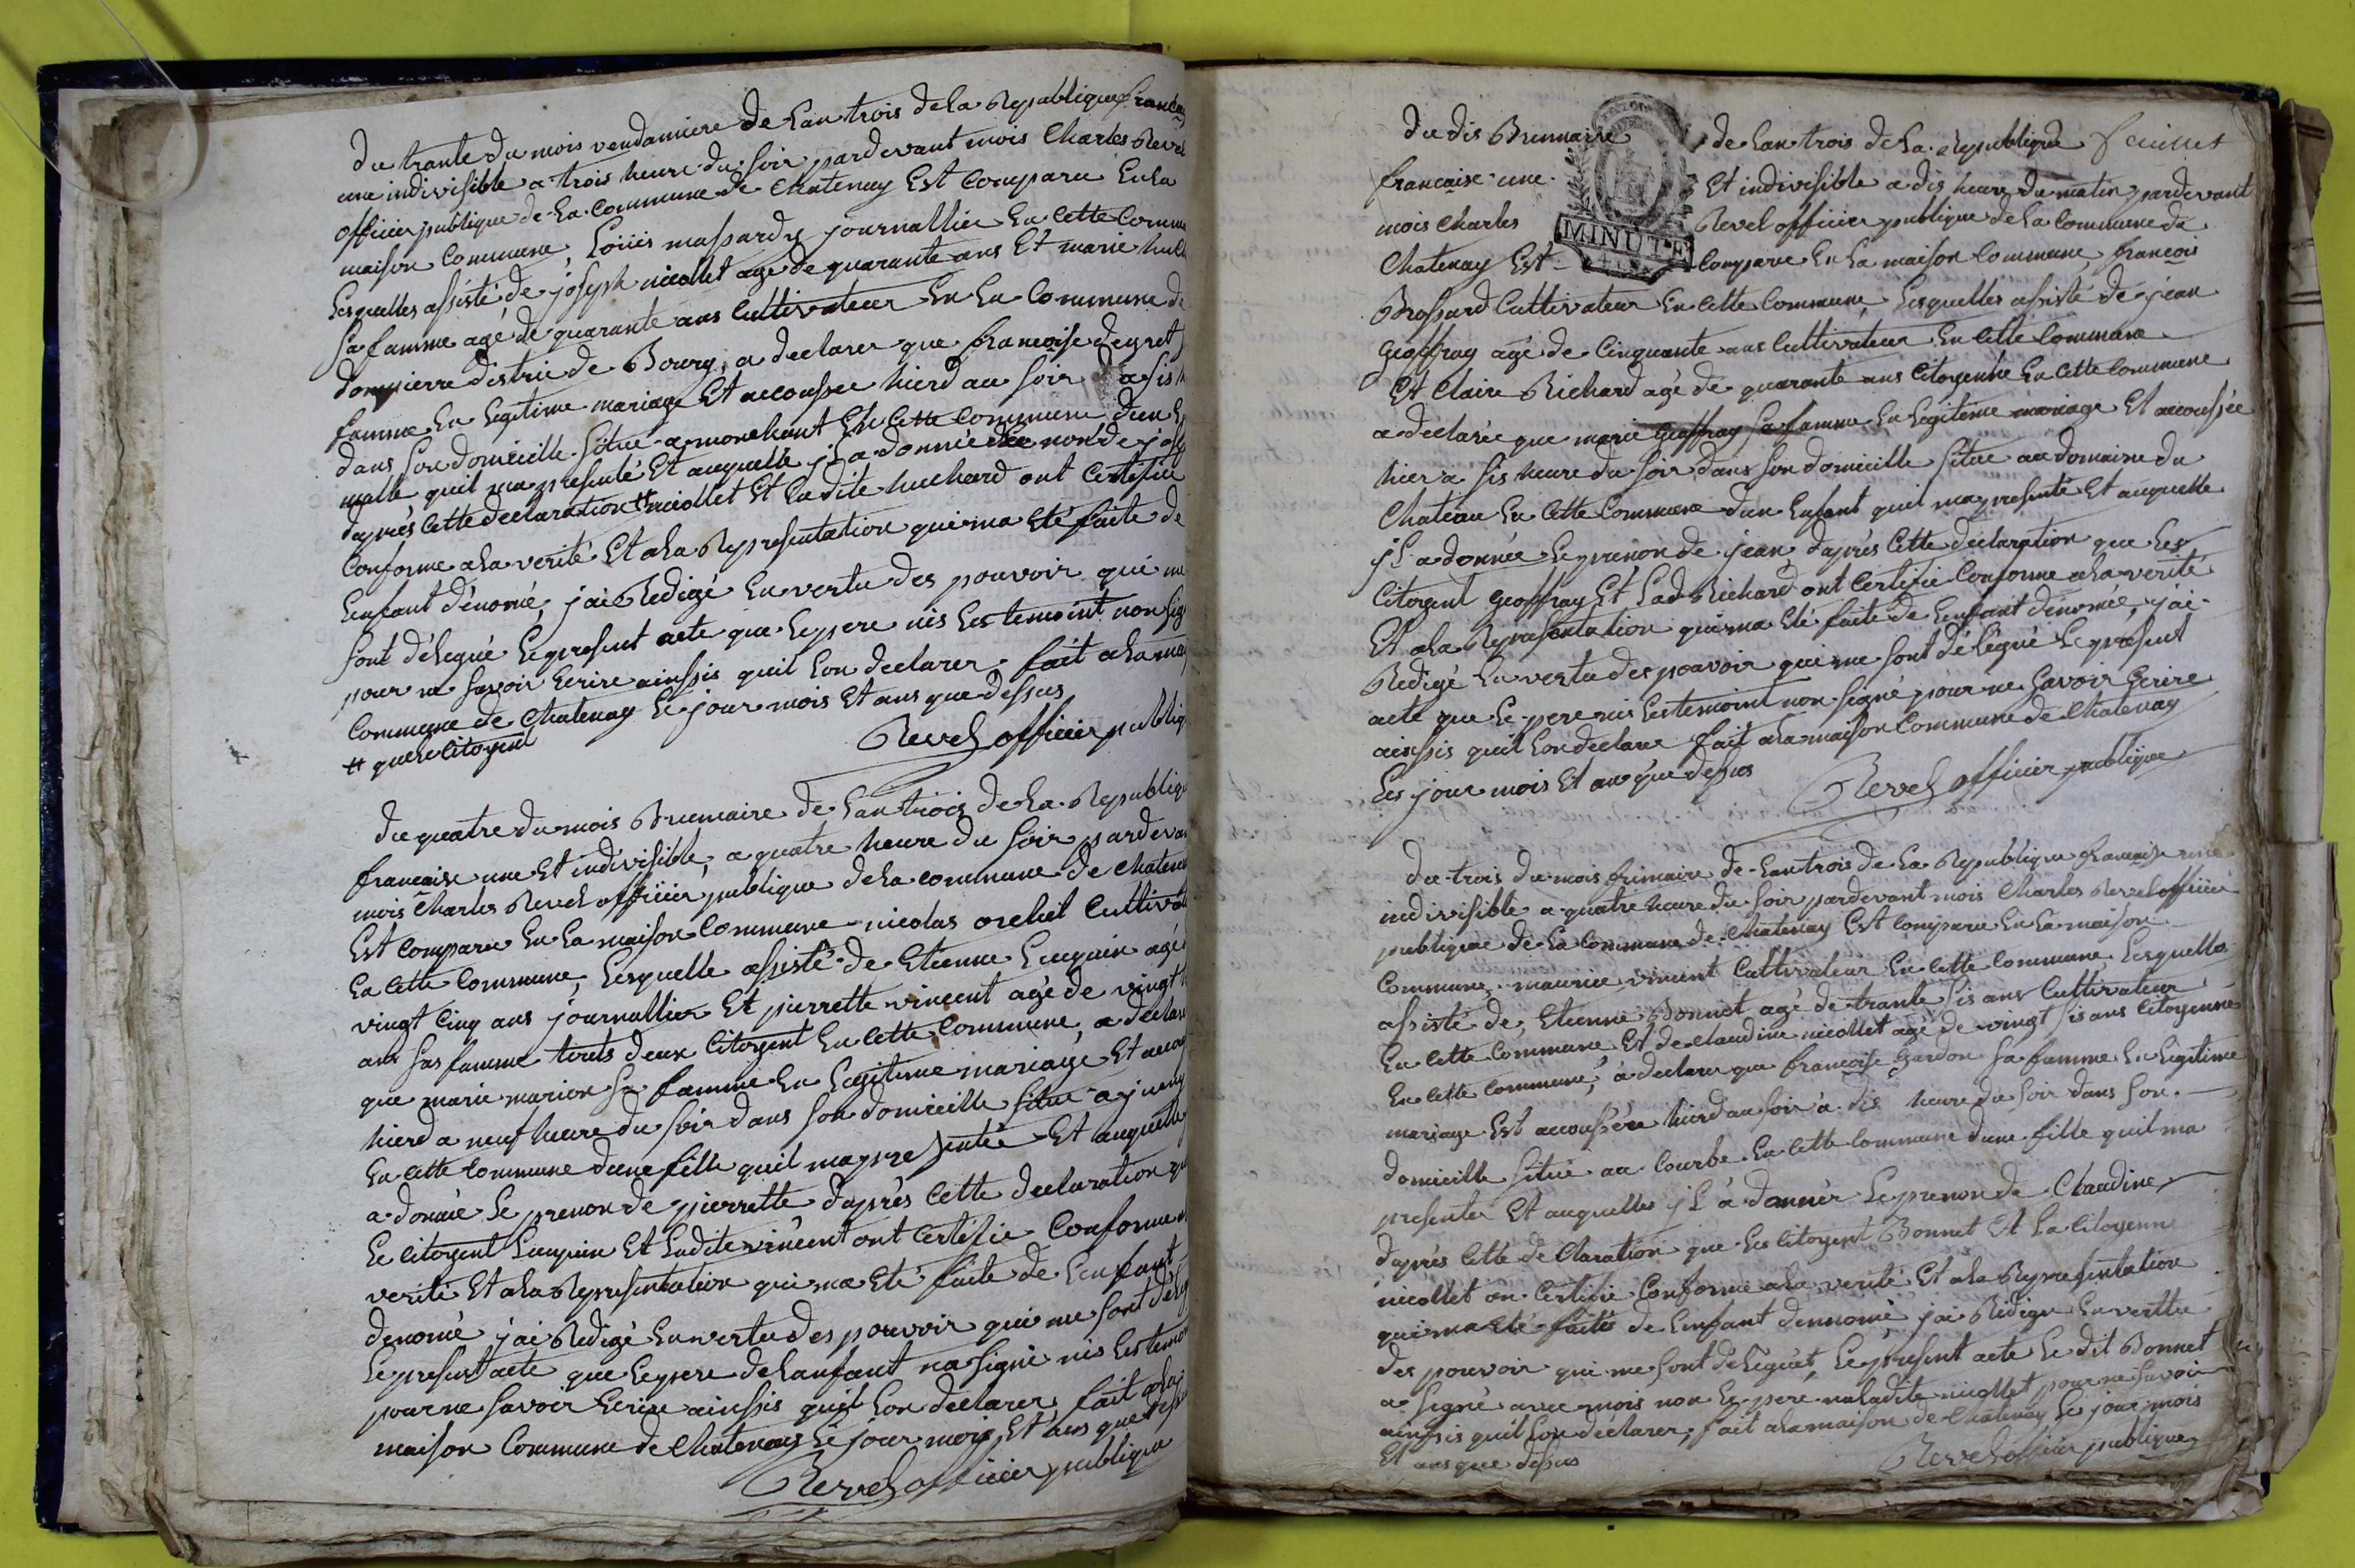 du trante du mois vendamiere de Lan trois de la Republique francai
une indivisible a trois heure du soir pardevant mois Charles Revel
officier publique de la commune de Chatenay Est Comparu En la
maison Commune, Loüis massardy journallier En Cette Commu
Lesquelles assisté de joseph nicollet age de quarante ans Et marie
sa famme agé de quarante ans Cultivateur En La Commune de
dompierre distric de Bourg, a declarer que francoise
famme En Legitime mariage Et accoussee hierd au soir a sis
dans son domicille situe a monchant En Cette Commune dun
malle quil ma presenté Et auquelle jl a donnée non de jos
dapres Cette declaration # nicollet Et Ladite huchard ont Certifiée
Conforme a La verité Et a La Representation qui ma Eté faite de
Lenfant dénomé, jai Redigé En vertu des pouvoir qui me
sont délegué Le present acte que Le pere nis Les temoint non sig
pour ne savoir Ecrire ainssis quil Lon declarer, fait a La mai
Commune de Chatenay Le jour mois Et ans que dessus
# que Le Citoyent
Revel officier publiq
du quatre du mois Brumaire de Lan trois de La Republiqu
francaise une Et indivisible, a quatre heure du soir pardevan
mois Charles Revel officier publique de La commune de Chatena
Est Comparu En La maison Commune nicolas orchet Cultivate
En Cette Commune, Lesquelle assisté de Etienne Luquin agé
vingt Cinq ans journallier Et pierrette vincent agé de vingt
ans sas famme touts deux Citoyent En Cette Commune, a declare
que marie marion sa famme En Legitime mariage Et accou
hierd a neuf heure du soir dans son domicille situe a
En Cette Commune dune fille quil ma presentée Et auquelle
a donnée Le prenon de pierrette dapres Cette declaration qu
Le Citoyent Luquin Et Ladite vincent ont Certifie Conforme a
verité Et a La Representation qui ma Eté faite de Lenfant
denomé jai Redigé En vertu des pouvoir qui me sont déleg
Le present acte que Le pere de Lanfant na signé nis Les temoi
pour ne savoir Ecrire ainssis quil Lon declarer, fait a La
maison Commune de Chatenay Le jour mois Et ans que dessus
Revel officier publique
feuillet
du dis Brumaire de Lan trois de La Republique
francaise une Et indivisible a dis heure du matin pardevant
mois Charles Revel officier publique de La Commune de
MINUTE
Chatenay Est Comparu En La maison Commune, francois
Brossard Cultivateur En Cette Commune, Lesquelles assisté de jean
Geoffray agé de Cinquante ans Cultivateur En Cette Commune
Et Claire Richard agé de quarante ans Citoyenne En Cette Commune
a declarée que marie Geoffray sa famme En Legitime mariage Et accoussée
hier a sis heure du soir dans son domicille situe au domaine du
Chateau En Cette Commune dun Enfant quil ma presenté Et auquelle
jl a donnée Le prenon de jean, dapres Cette declaration que Les
Citoyent Geoffray Et Lad Richard ont Certifie Conforme a La verité
Et a La Representation qui ma Eté faite de Lenfant dénomée, jai
Redigé En vertu des pouvoir qui me sont délégué Le présent
acte que Le pere nis Les temoint non signé pour ne savoir Ecrire
ainssis quil Lon declare fait a La maison Commune de Chatenay
Les jour mois Et an que dessus
Revel officier publique
du trois du mois frimaire de Lan trois de La Republique francaise une
indivisible a quatre heure du soir pardevant mois Charles Revel officier
publique de La Commune de Chatenay Est Comparu En La maison
Commune maurice vincent Cultivateur En Cette Commune, Lesquelles
assisté de Etienne Bonnet agé de trante sis ans Cultivateur
En Cette Commune Et de Claudine nicollet agé de vingt sis ans Citoyenne
En Cette Commune, a declare que francoise Gardon sa famme En Legitime
mariage Est accoussée hierd au soir a dis heure du soir dans son
domicille situé au Courbe En Cette Commune dune fille quil ma
presenter Et auquelles jl à donner Le prenon de Claudine
dapres Cette declaration que Les Citoyent Bonnet Et La Citoyenne
nicollet on Certifie Conforme a La verité Et a La Representation
qui ma Eté faite de Lenfant dennomé jai Redige En vertu
des pouvoir qui me sont deleguét, Le present acte Le dit Bonnet
a signé avec mois non Le pere na Ladite nicollet pour ne savoir
ainssis quil Lon déclarer, fait a La maison de Chatenay Le jour mois
Et ans que dessus
Revel officier publique